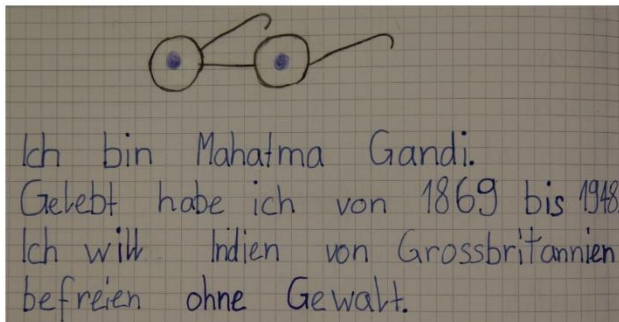 Ich bin Mahatma Gandi.
Gelebt habe ich von 1869 bis 1948.
Ich will Indien von Grossbritannien
befreien ohne Gewalt.